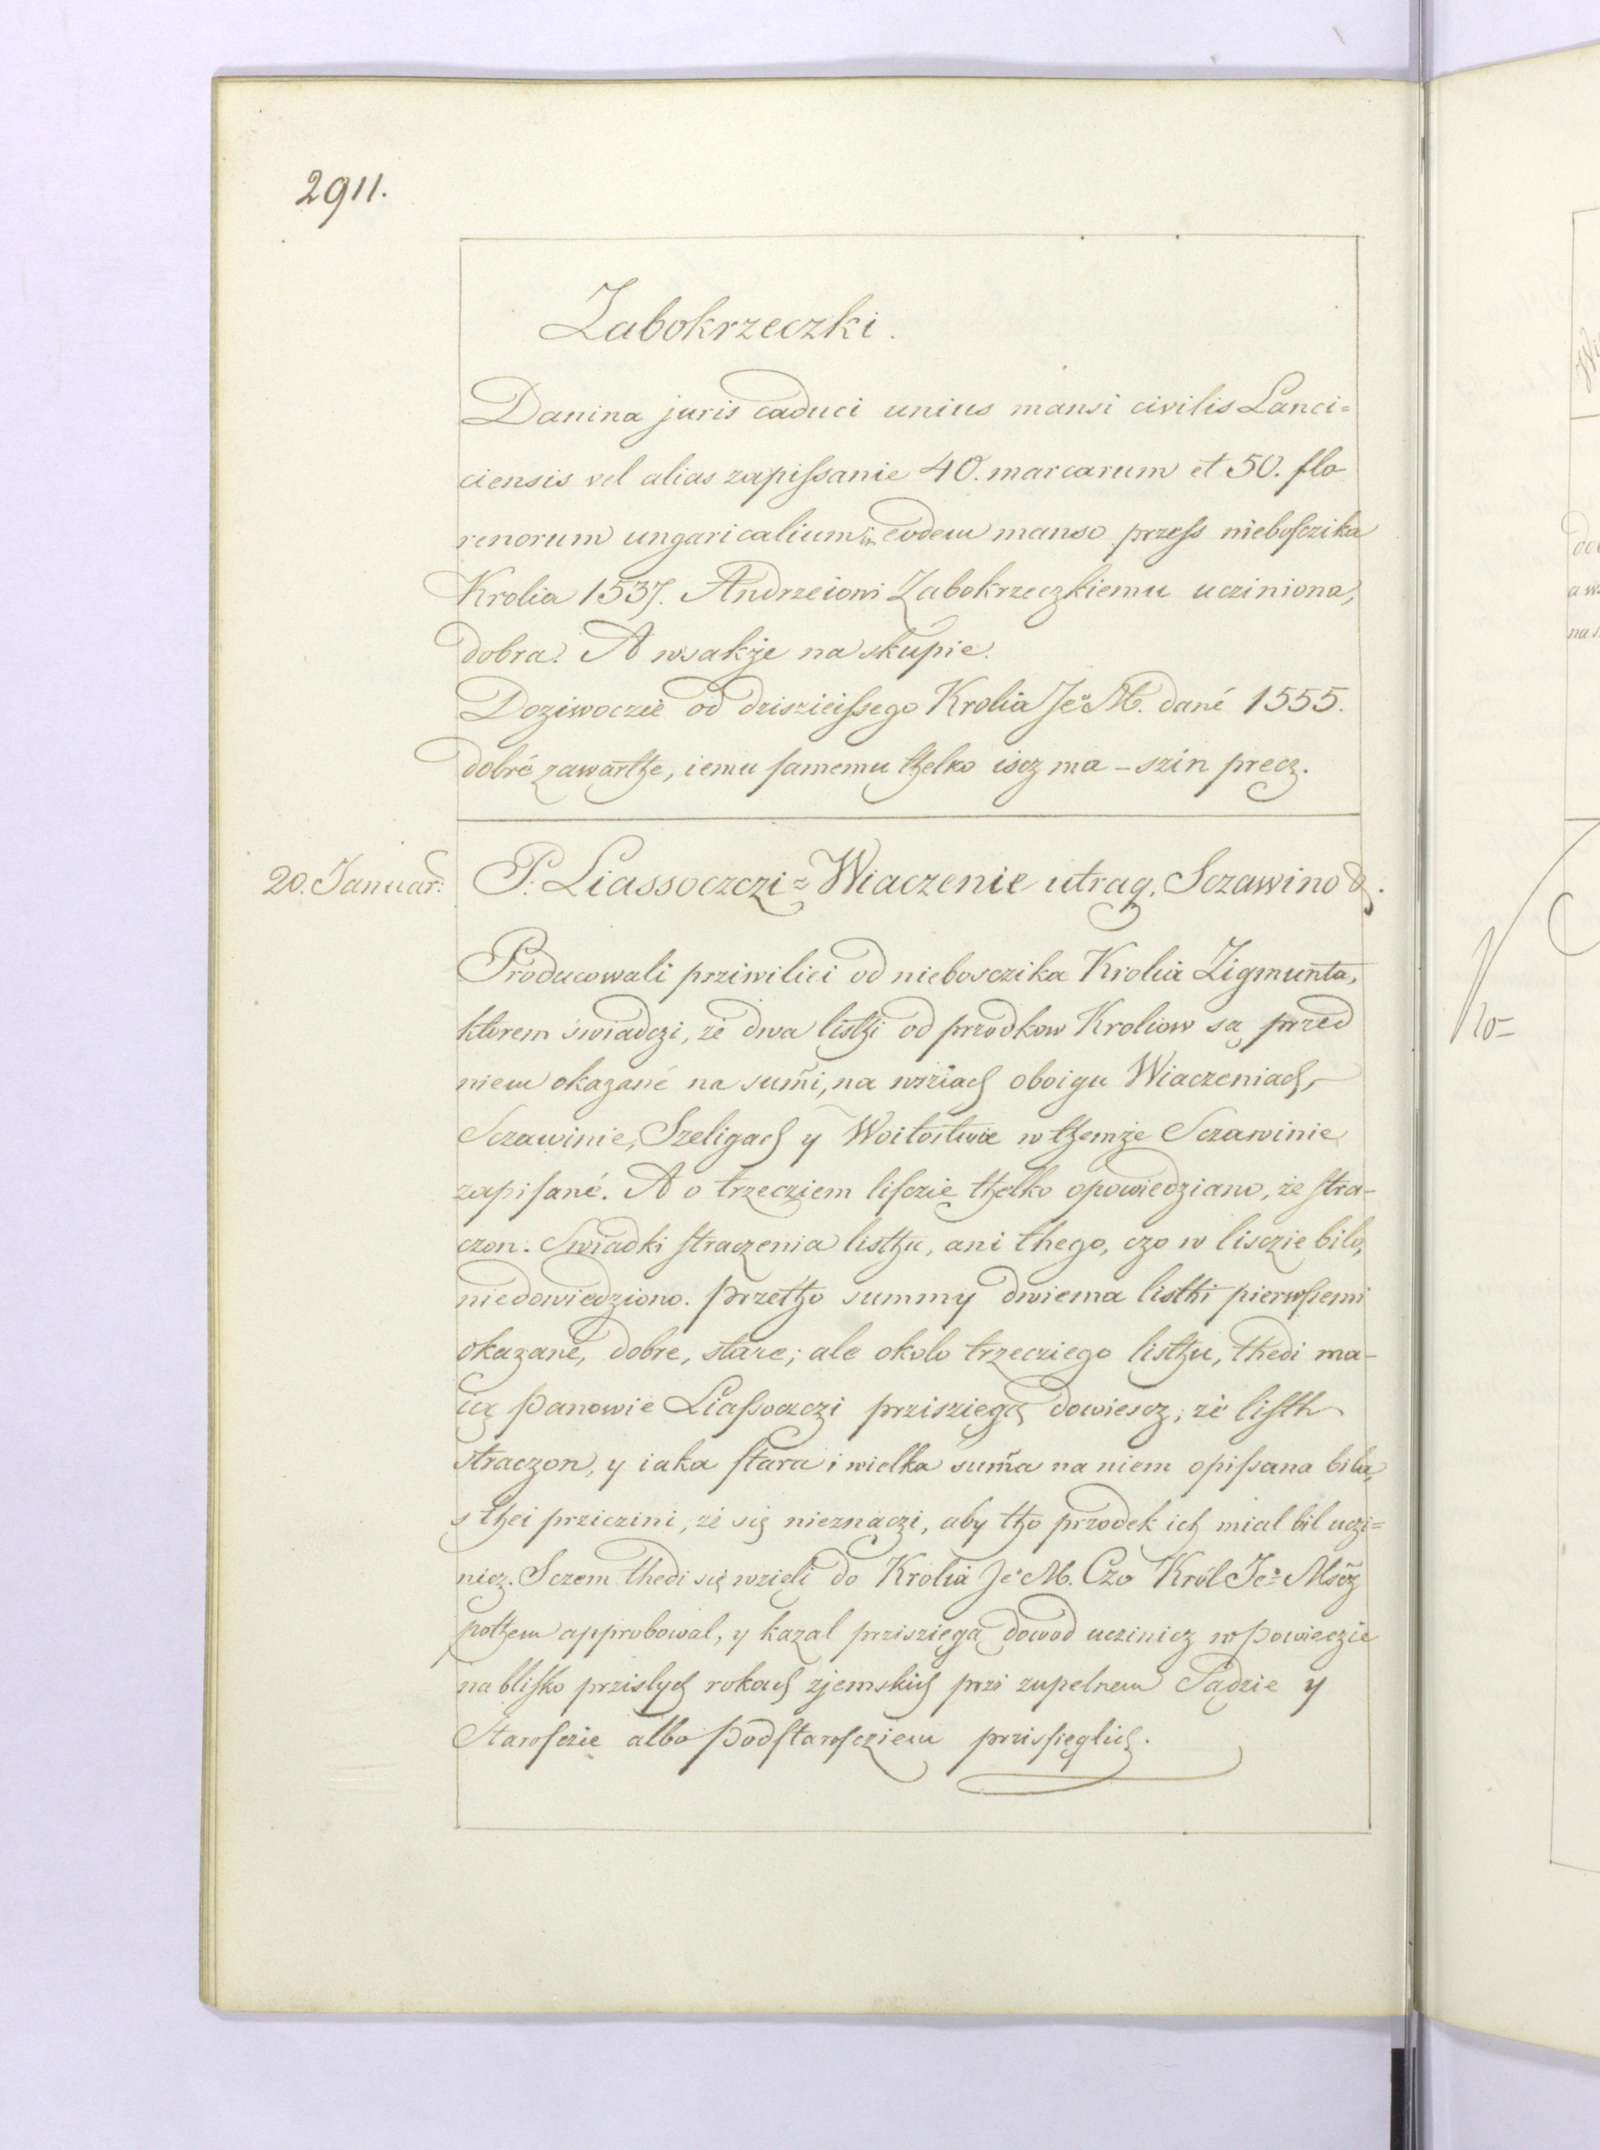 2911.
Zabokrzeczki.
Danina juris caduci unius mansi civilis Lanci=
ciensis vel alias zapissanie 40. marcarum et 50. flo
renorum ungaricalium in eodem manso przess nieboszczika
Krolia 1537. Andrzeiowi Zabokrzeczkiemu ucziniona,
dobra. A wsakże na skupie.
Doziwoczie od dziszieissego Krolia Je° M. dané 1555.
dobré zawarthe, iemu samemu thelko iscz ma – szin precz.
20. Januar:
P. Liassoczczi = Wiaczenie utraq. Sczawino &.
Producowali priwiliei od niebosczika Krolia Zigmunta,
ktorem swiadczi, że dwa listhi od przodkow Kroliow są przed
niem okazané na sum̃i, na wsiach oboigu Wiaczeniach,
Sczawinie, Szeligach y Woitostwie w themże Sczawinie
zapisané. A o trzecziem lisczie thelko opowiedziano, że stra-
czon. Swiadki straczenia listhu, ani thego, czo w lisczie bilo,
niedowiedziono. Przetho summy dwiema listhi pierwssemi
okazané, dobre, stare; ale okolo trzecziego listhu, thedi ma-
ią Panowie Liassoczczi prziszięgą dowiescz, że listh
straczon, y iaka stara i wielka sum̃a na niem opissana bila,
s thei przicini, że się nieznaczi, aby tho przodek ich mial bil uczi=
nicz. Sczem thedi się wzięli do Krolia Je° M. Czo Król Je° Mscz
pothem approbowal, y kazal prziszięgą dowod uczinicz w Powieczie
na blisko przislych rokach zjemskich przi zupelnem Sądzie y
Starosczie albo Podstaroscziem przissięglich.